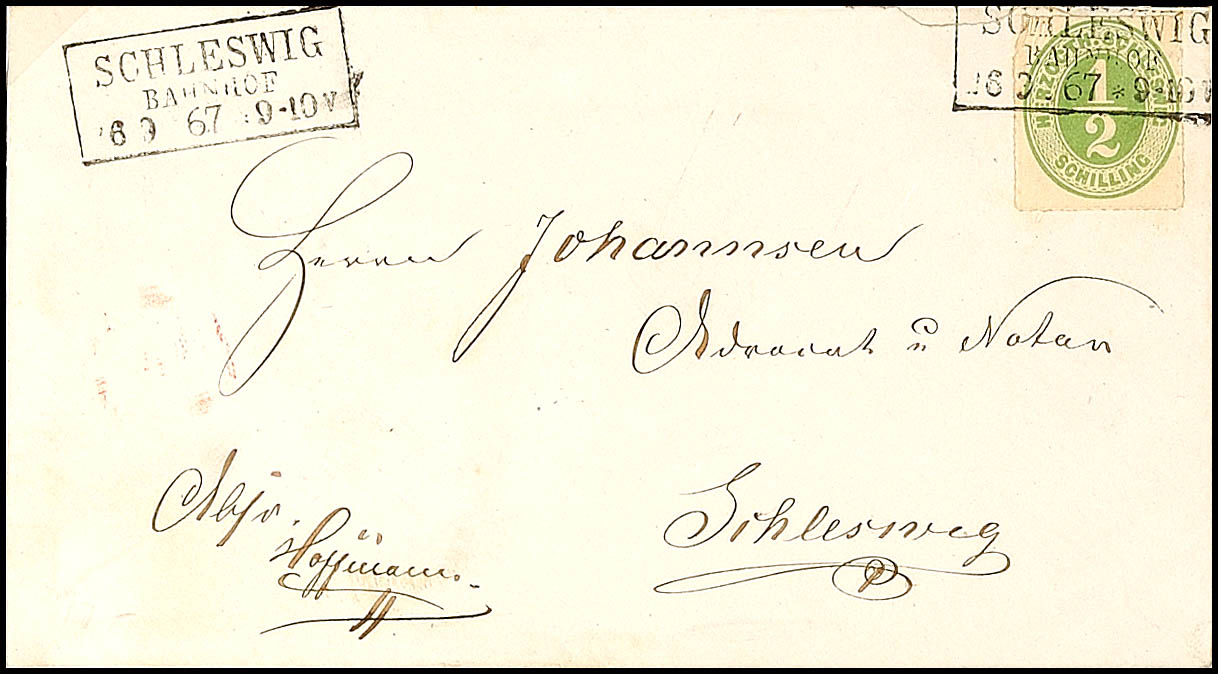 SCHLESWIG
BAHNHOF
67 9-10 V
SCHLESWIG
BAHNHOF
67 * 9-10 V
HERZOGTH. SCHLESWIG
1/2
SCHILLING
Herrn Johannsen
Advocat u Notar
Schleswig
Absr.
Hoffmann.